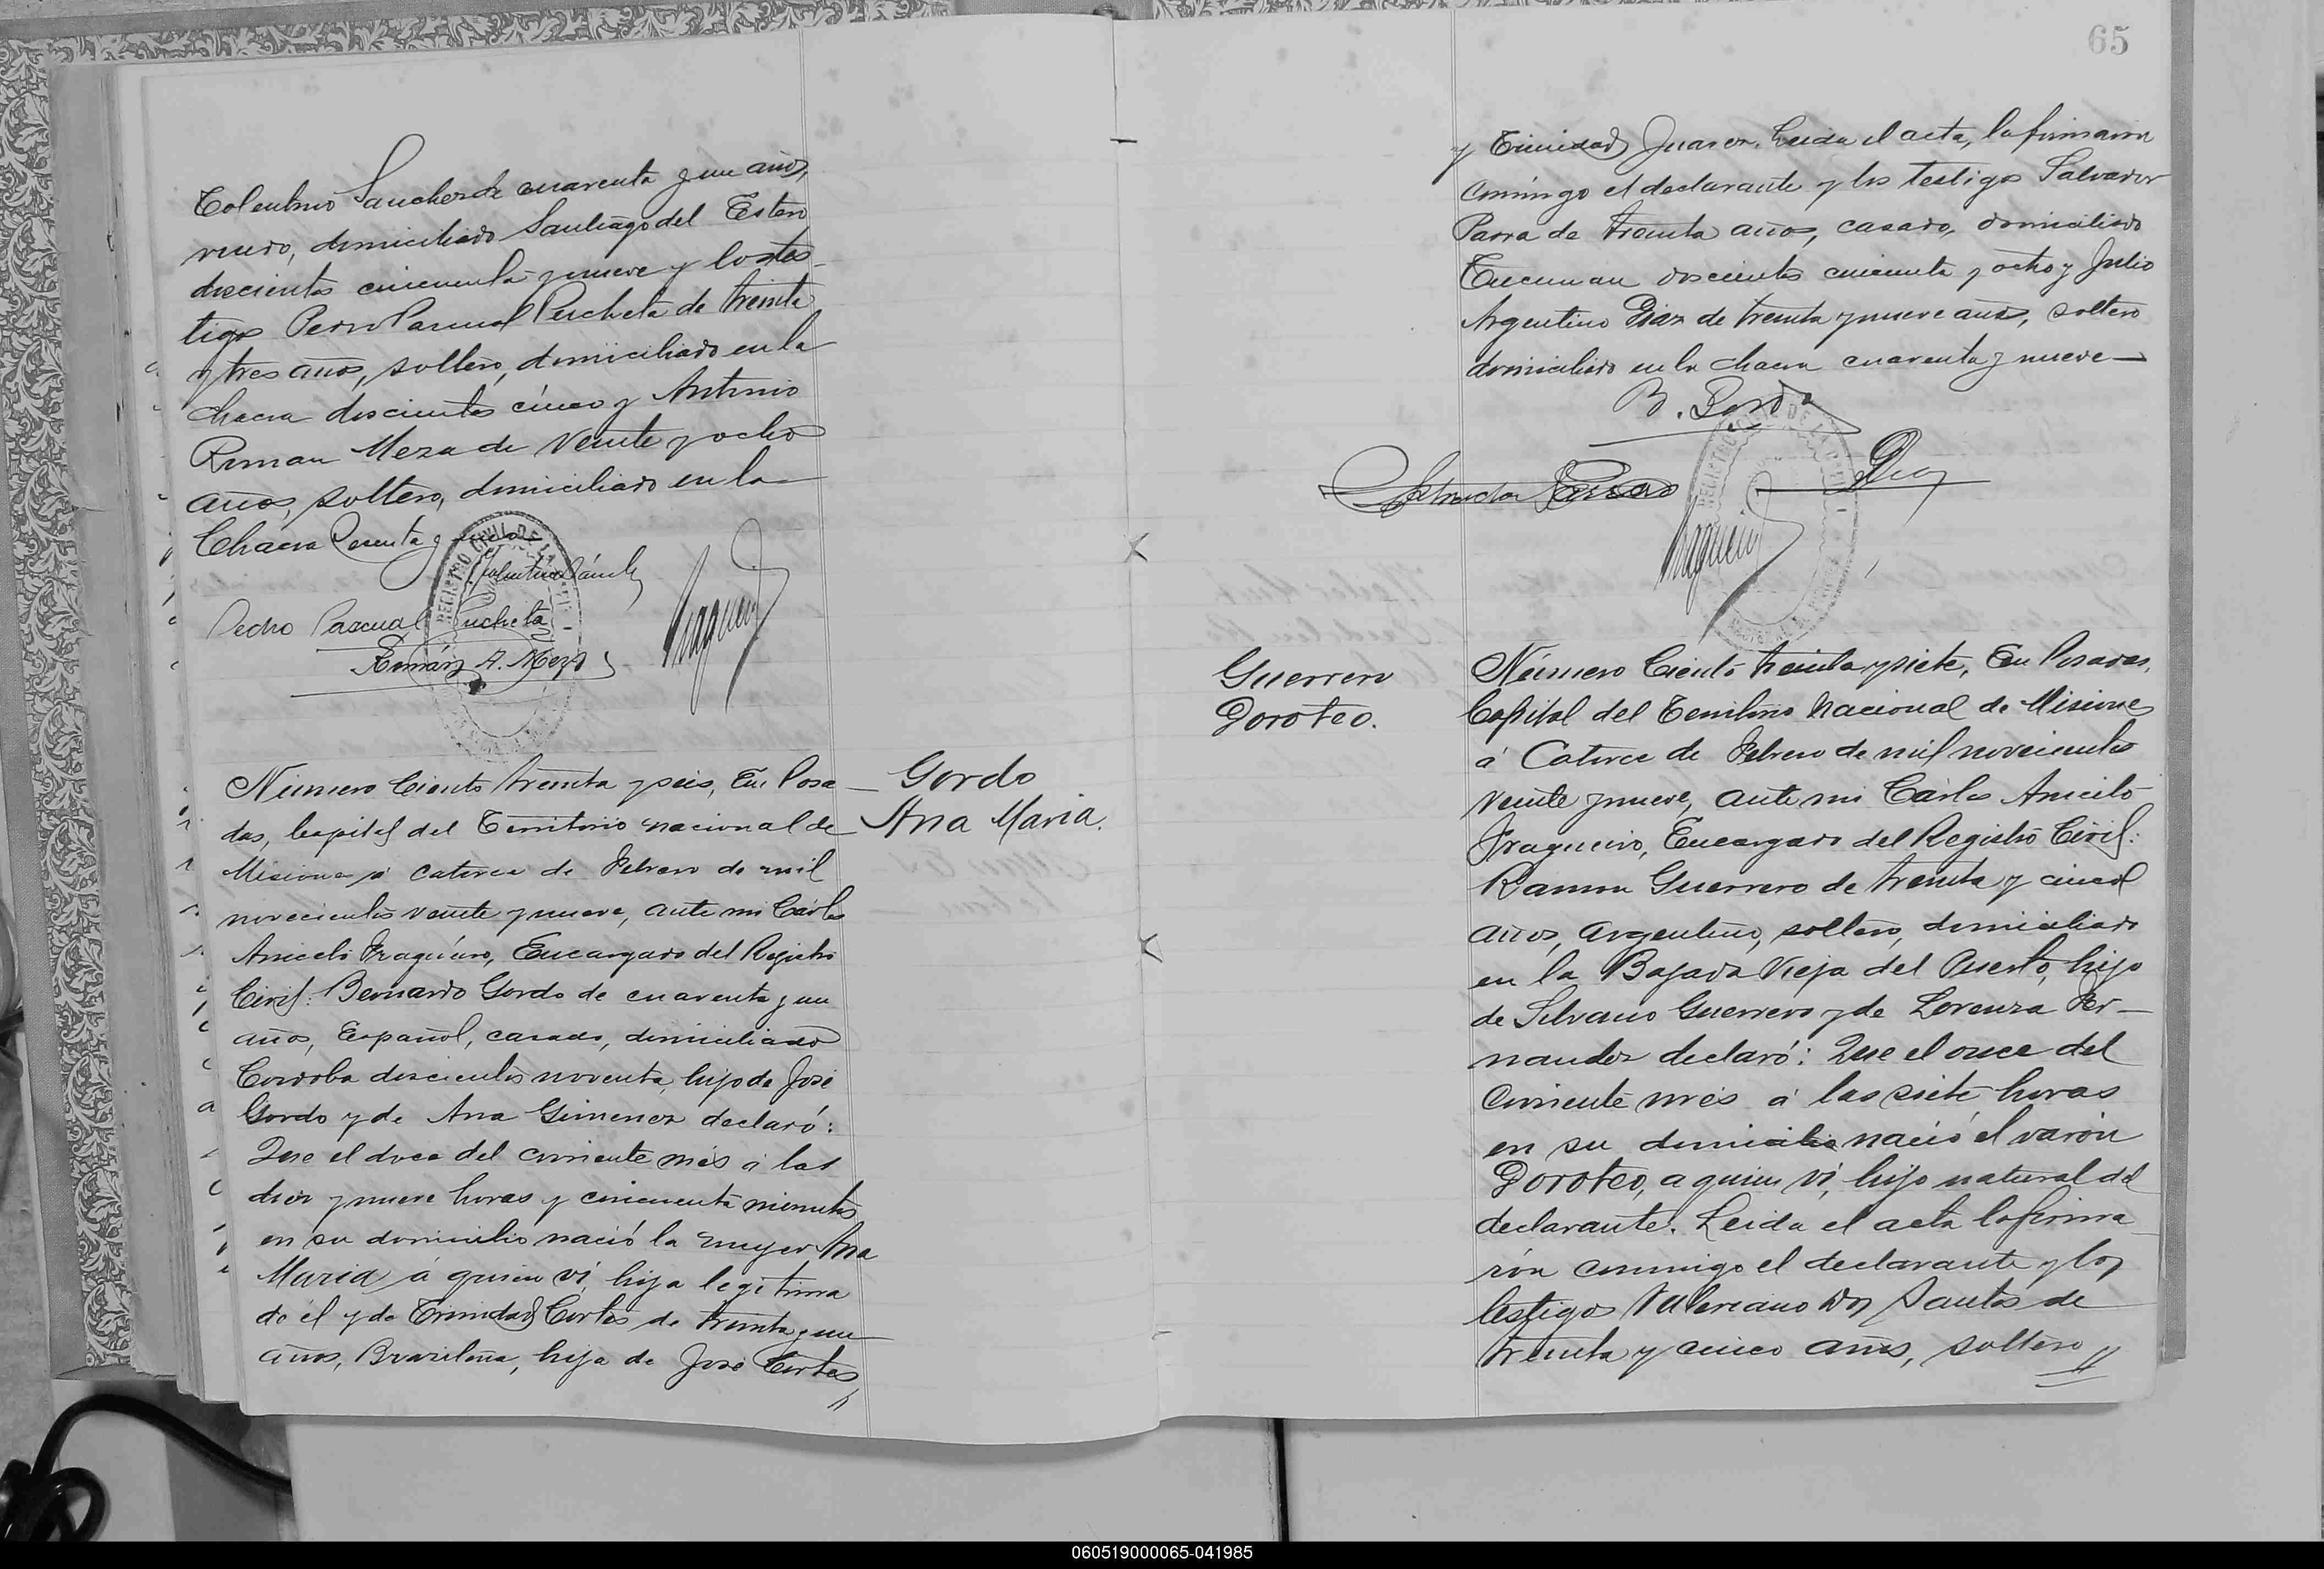 65
Tolentino Sanchez de cuarenta y un años,
viudo, domiciliado Santiago del Estero
doscientos cincuenta y nueve y los tes-
tigos Pedro Pascual Pucheta de treinta
y tres años, soltero, domiciliado en la
chacra doscientos cinco y Antonio
Roman Meza de veinte y ocho
años, soltero, domiciliado en la
Chacra
Tolentino Sánchez
Pedro Pascual Pucheta
Román A. Meza
Fragueiro
Gordo
Ana Maria.
Número Ciento treinta y seis, En Posa-
das, Capital del Territorio nacional de
Misiones á catorce de Febrero de mil
novecientos veinte y nueve, ante mi Cárlos
Aniceto Fragueiro, Encargado del Registro
Civil: Bernardo Gordo de cuarenta y un
años, Español, casado, domiciliado
Cordoba doscientos noventa, hijo de José
Gordo y de Ana Gimenez declaró:
Que el doce del corriente mes á las
diez y nueve horas y cincuenta minutos
en su domicilio nació la mujer Ana
Maria á quien ví, hija legítima
de él y de Trinidad Cortes de treinta y un
años, Brazileña, hija de José Cortes,
y Trinidad Juarez. Leida el acta, la firmaron
conmigo el declarante y los testigos Salvador
Parra de treinta años, casado, domiciliado
Tucuman doscientos cincuenta y ocho y Julio
Argentino Diaz de treinta y nueve años, soltero
domiciliado en la chacra cuarenta y nueve—
B. Gordo
Salvador Parra
Diaz
Fragueiro
Guerrero
Doroteo.
Número Ciento treinta y siete, En Posadas,
Capital del Territorio Nacional de Misiones
á Catorce de Febrero de mil novecientos
veinte y nueve, ante mi Cárlos Aniceto
Fragueiro, Encargado del Registro Civil:
Ramon Guerrero de treinta y cinco
años, argentino, soltero, domiciliado
en la Bajada Vieja del Puerto, hijo
de Silvano Guerrero y de Lorenza Fer-
nandez declaró: Que el once del
corriente mes á las siete horas
en su domicilio nació el varón
Doroteo, a quien ví, hijo natural del
declarante. Leida el acta la firma-
rón conmigo el declarante y los
testigos Valeriano Dos Santos de
treinta y cinco años, soltero //
060519000065-041985